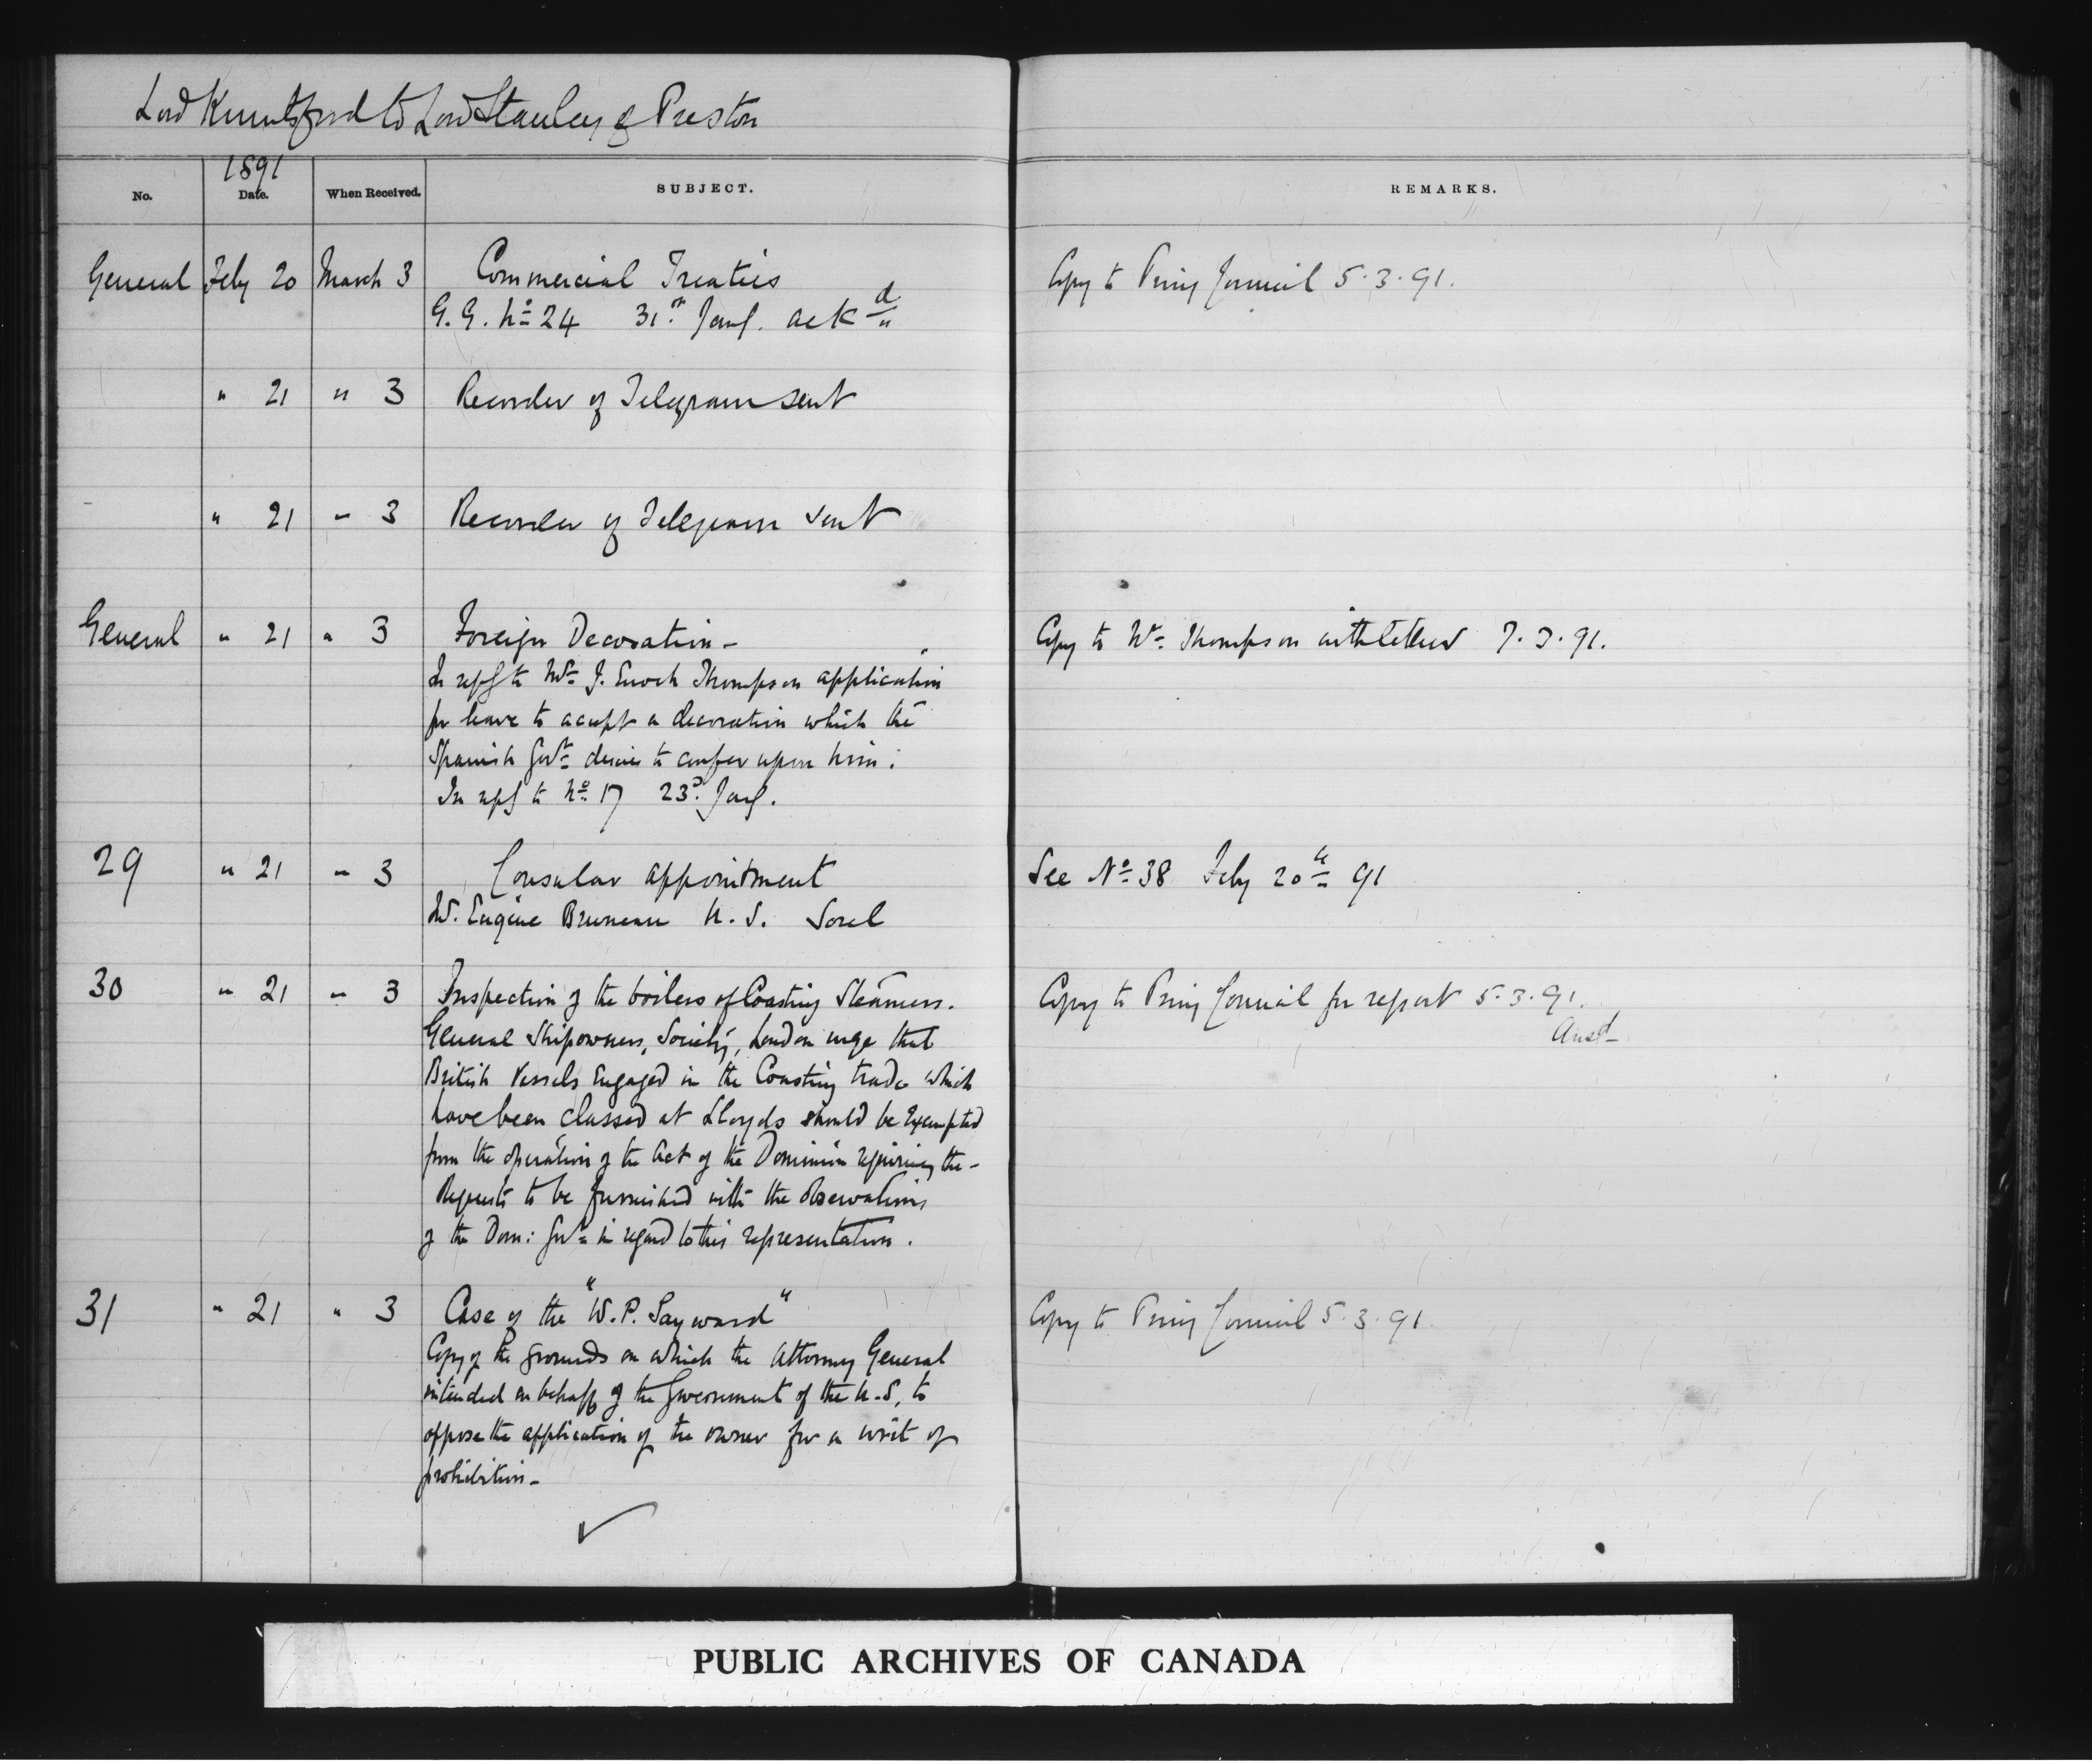 Lord Knutsford to Lord Stanley of Preston
1891
No. Date. When Received. SUBJECT. REMARKS.
General Feby 20 March 3 Commercial Treaties Copy to Privy Council 5.3.91.
G.G. No 24 31st Jany. ackd
" 21 " 3 Recorder of Telegram sent
" 21 " 3 Recorder of Telegram sent
General " 21 " 3 Foreign Decoration - Copy to Mr Thompson with letter 7.3.91.
In reply to Mr J. Enoch Thompson application
for leave to accept a decoration which the
Spanish Govt desires to confer upon him:
In reply to No 17 23d Jany.
29 " 21 " 3 Consular appointment See No 38 Feby 20th 91
M. Eugène Bruneau U.S. Sorel
30 " 21 " 3 Inspection of the boilers of Coasting Steamers. Copy to Privy Council for report 5.3.91.
Ansd
General Shipowners, Society, London urge that
British Vessels Engaged in the Coasting trade which
have been classed at Lloyds should be Exempted
from the operation of the Act of the Dominion requiring the -
Requests to be furnished with the observations
of the Dom: Govt in regard to this representation.
31 " 21 " 3 Case of the "W.P. Sayward" Copy to Privy Council 5.3.91.
Copy of the grounds on which the Attorney General
intended on behalf of the Government of the U.S. to
oppose the application of the owner for a writ of
prohibition -
PUBLIC ARCHIVES OF CANADA